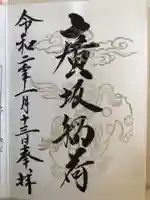 廣坂稲荷
令和二年十一月十三日奉拝